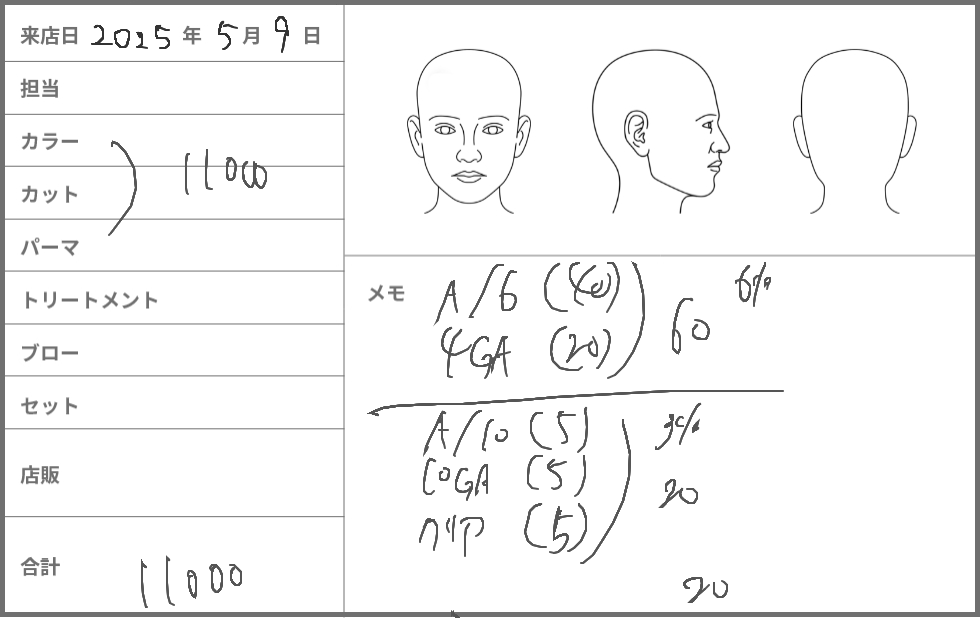 来店日 2025 年 5 月 9 日
担当
カラー
カット
パーマ
11000
トリートメント
ブロー
セット
店販
合計 11000
メモ
A/6 (40)
4GA (20)
60
6%
A/10 (5)
10GA (5)
クリア (5)
3%
20
20